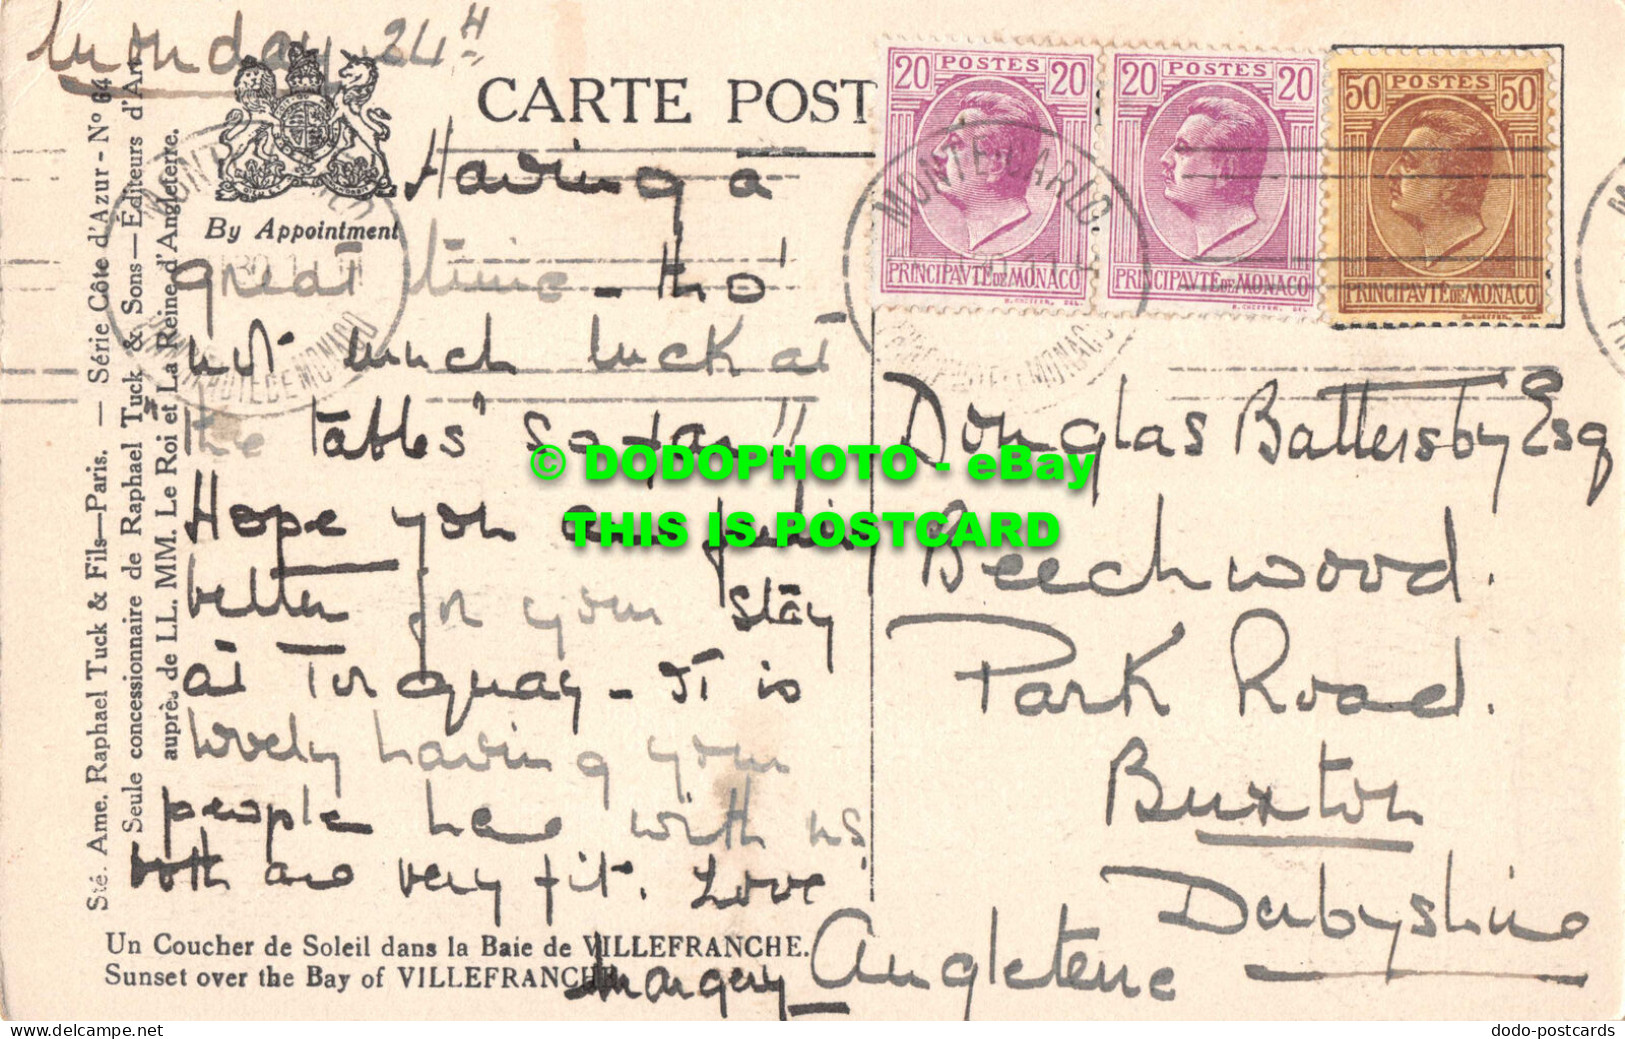 Monday 24th
CARTE POST
By Appointment
Sté. Ame. Raphael Tuck & Fils—Paris. — Série Côte d'Azur - No 64
Seule concessionnaire de Raphael Tuck & Sons—Éditeurs d'Art
auprès de LL. MM. Le Roi et La Reine d'Angleterre.
Having a
great time - tho'
not much luck at
the "tables" so far!!
Hope you are feelin
better for your stay
at Torquay - It is
lovely having your
people here with us,
both are very fit. Love
Margery
Un Coucher de Soleil dans la Baie de VILLEFRANCHE.
Sunset over the Bay of VILLEFRANCHE
20 POSTES 20
PRINCIPAVTÉ DE MONACO
20 POSTES 20
PRINCIPAVTÉ DE MONACO
50 POSTES 50
PRINCIPAVTÉ DE MONACO
MONTE-CARLO
PRINCIPAUTE DE MONACO
Douglas Battersby Esq
Beechwood.
Park Road.
Buxton
Derbyshire
Angleterre
© DODOPHOTO - eBay
THIS IS POSTCARD
www.delcampe.net
dodo-postcards